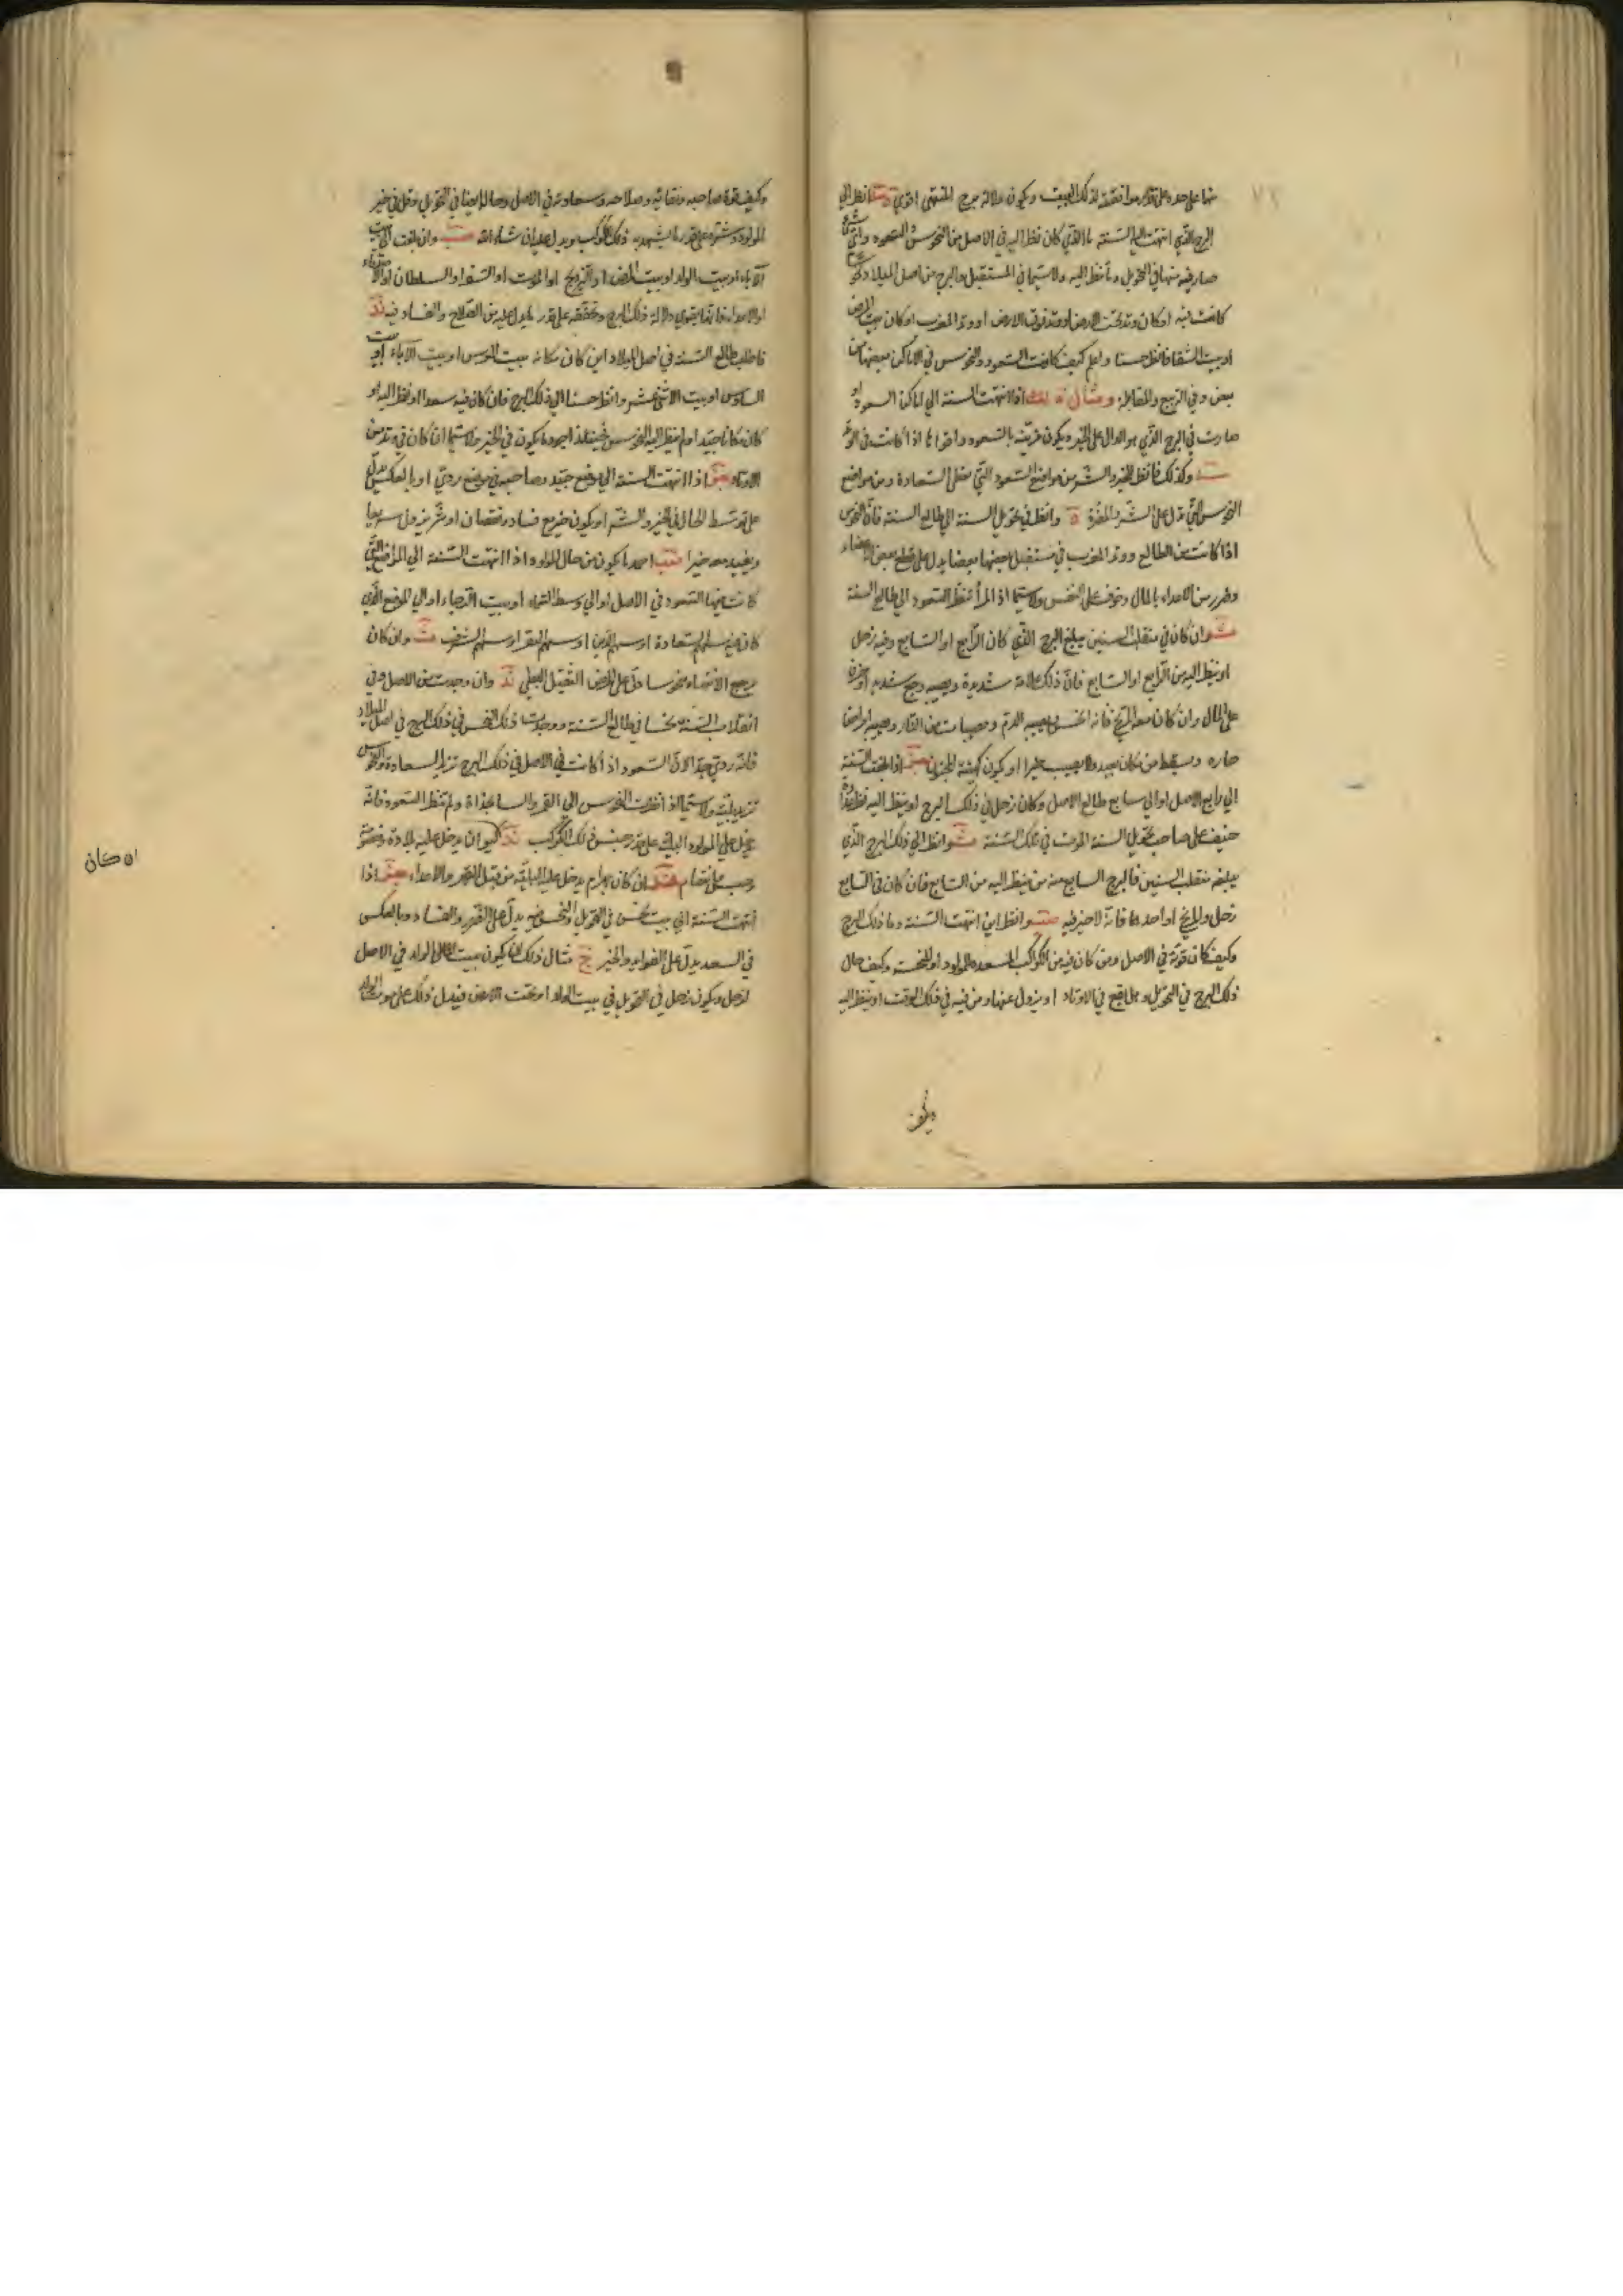 منها على حده على قدر موافقته لذلك البيت ويكون دلالة برج المنتهى اقوى انظر الى
البرج الذي انتهت اليه السنة ما الذي كان نظر اليه في الاصل من النحوس والسعود واي شيء
صار فيه منها في التحويل وما نظر اليه ولا سيما في المستقبل والبرج من اصل الميلاد
كانت فيه اوكان وتد تحت الارض او وتد فوق الارض او وتد المغرب اوكان بيت المرض
او بيت الشقا فانظر حسنا واعلم كيف كانت السعود والنحوس في الاماكن بعضها من
بعض وفي التربيع والمقابلة ومثال ذلك اذا انتهت السنة الى اماكن السعود او
صارت في البرج الذي هو الدال على الخير ويكون قريبه بالسعود اذا كانت في الوتد
وكذلك فانظر للخير والشر من مواضع السعود التي تعطى السعادة ومن مواضع
النحوس التي تدل على الشر والمضرة وانظر في تحويل السنة الى طالع السنة فان النحوس
اذا كانت من الطالع ووتد المغرب في مستقبل بعضها بعضا يدل على قطع بعض الاعضاء
وضرر من الاعداء بالمال وخوف على النفس ولا سيما اذا لم تنظر السعود الى طالع السنة
وان كان في منقلب السنين يبلغ البرج الذي كان الرابع او السابع وفيه زحل
او ينظر اليه من الرابع او السابع فان ذلك علامة شديدة ويصيبه وجع شديد
على المال وان كان معه المريخ فانه يصيبه الدم ومصيبات من النار ويصيبه امراض
حاره ويسقط من مكان بعيد ولا يصيب خيرا او يكون كهيئة المجنون اذا بلغت السنة
الى رابع الاصل او الى سابع طالع الاصل وكان زحل في ذلك البرج او ينظر اليه
خيف على صاحب تحويل السنة الموت في تلك السنة وانظر الى ذلك البرج الذي
يبلغه منقلب السنين فالبرج السابع منه من ينظر اليه من السابع فان كان في السابع
زحل والمريخ او احدهما فانه لا خير فيه وانظر اين انتهت السنة وما ذلك البرج
وكيف كان قوته في الاصل ومن كان فيه من الكواكب المسعده للمولود او المنحسة وكيف حال
ذلك البرج في التحويل وهل يقع في الاوتاد او يزول عنها ومن فيه في ذلك الوقت او ينظر اليه
وكيف
وكيف قوة صاحبه ونقائه وصلاحه وسعادته في الاصل وحاله ايضا في التحويل وقل في خير
المولود وشره على قدر ما يشهد به ذلك الكوكب ويدل عليه ان شاء الله وان بلغت الى بيت
الآباء او بيت الولد او بيت المرض او التزويج او الموت او السفر او السلطان او الاصدقاء
او الاعداء فانما يقوى دلالة ذلك البرج وتحققه على قدر ما يدل عليه من الصلاح والفساد فيه
فاطلب طالع السنة في اصل الميلاد اين كان مكانه بيت العرس او بيت الآباء او بيت
السادس او بيت الاثني عشر وانظر حسنا الى ذلك البرج فان كان فيه سعدا او نظر اليه او
كان مكانا جيدا ولم ينظر اليه النحوس فحينئذ اجود ما يكون في الخير ولا سيما ان كان في وتد من
الاوتاد اذا انتهت السنة الى موضع جيد وصاحبه في موضع ردي او بالعكس يدل
على توسط الحال في الخير والشر او يكون خير مع فساد ونقصان او شر يزول سريعا
ويفيد معه خيرا احمد ما يكون من حال المولود اذا انتهت السنة الى المواضع التي
كانت فيها السعود في الاصل او الى وسط السماء او بيت الرجاء او الى الموضع الذي
كان فيه سهم السعادة او سهم الدين او سهم البقر او سهم الشرف وان كان
مرجع الانتهاء نحوسا دل على المرض الثقيل البطي وان وجدت من الاصل وفي
انقلاب السنة نحسا في طالع السنة ووجدت ذلك النحس في ذلك البرج في اصل الميلاد
فانه ردي جدا لان السعود اذا كانت في الاصل في ذلك البرج تزيد السعادة والنحوس
تزيد بليته ولا سيما اذا نظرت النحوس الى القمر والى الساعة ولم تنظر السعود فانه
يدخل على المولود البلاء على قدر جنس ذلك الكوكب كيوان يدخل عليه
ان كان بهرام يدخل عليه البلية من قبل القهر والاعداء اذا
انتهت السنة الى بيت نحس في التحويل والنحس فيه يدل على الضرر والفساد وبالعكس
في السعد يدل على الفوايد والخير مثال ذلك ان يكون بيت المال او الولد في الاصل
لزحل ويكون زحل في التحويل في بيت الولد او تحت الارض فيدل ذلك على موت الولد
ان كان